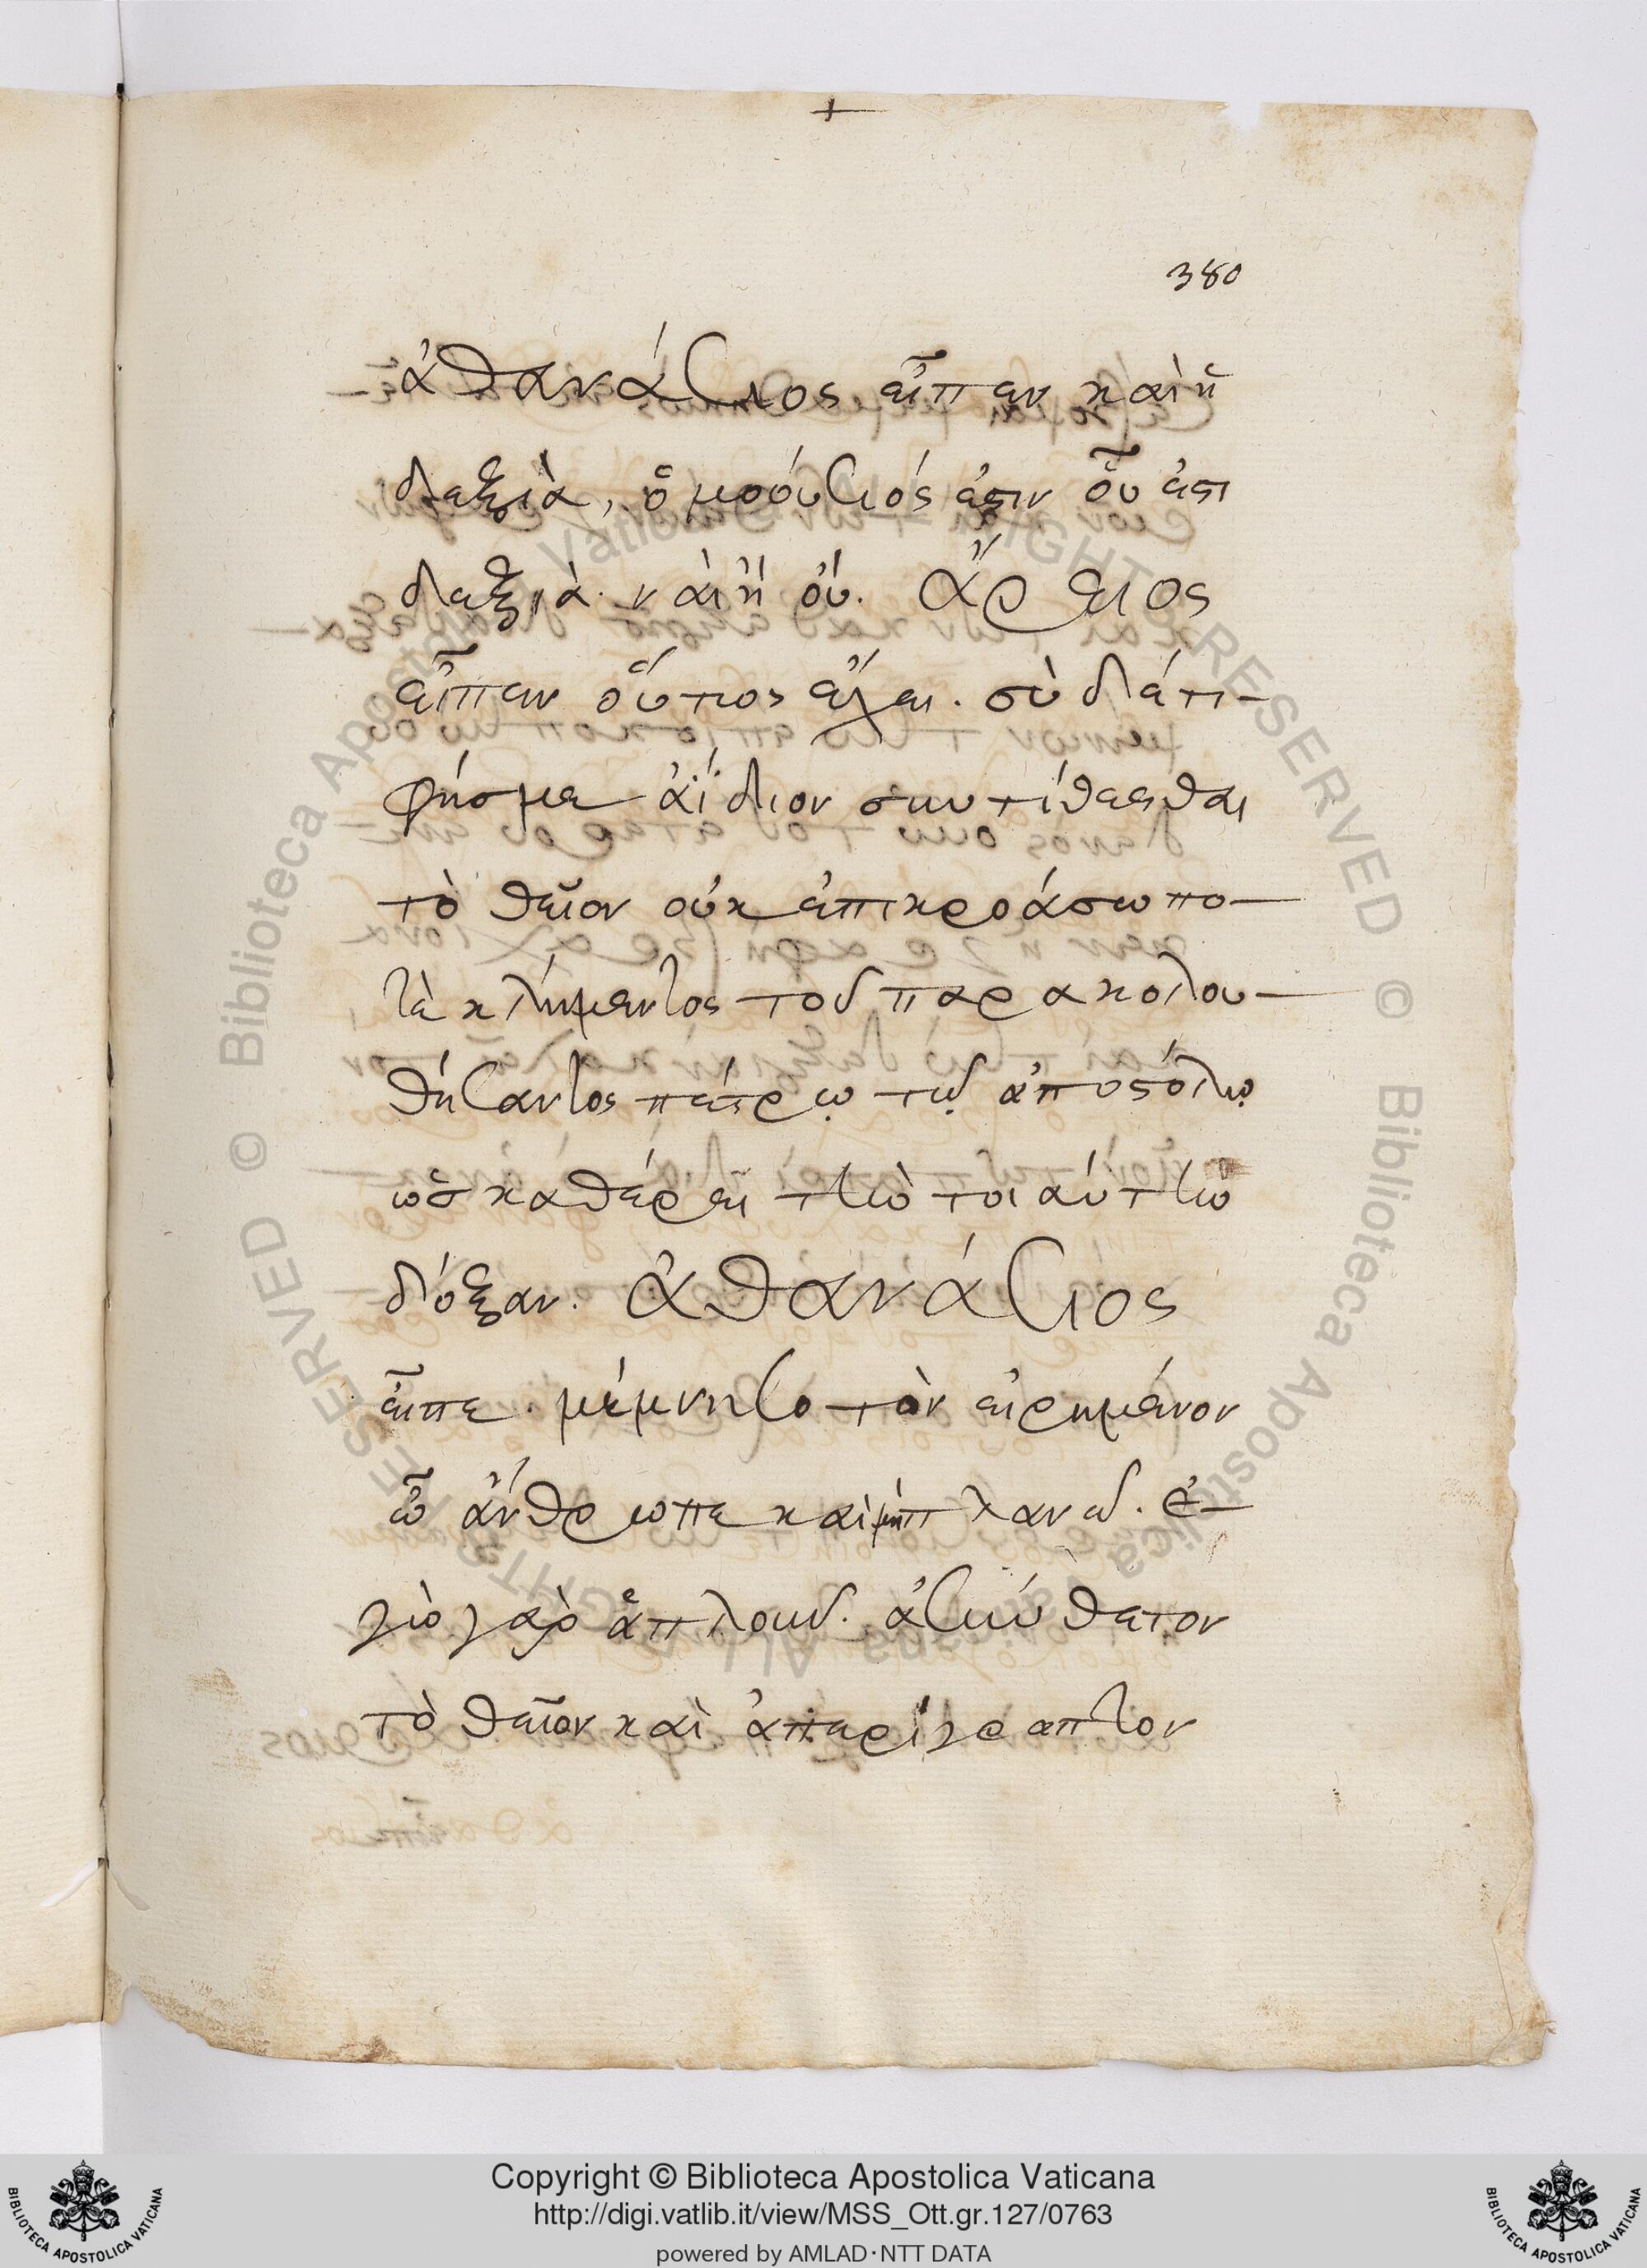 380
ἀθανάσιος εἶπεν καὶ ἡ
δεξιὰ, ὁμοούσιός ἐστιν οὗ ἐστι
δεξιὰ ναὶ ἢ οὔ. ἄρειος
εἶπεν οὕτως ἔχει. σὺ δέ τι
φήσμε ἀΐδιον συντίθεσθαι
τὸ θεῖον οὐκ ἐπικροάσω πο-
τὲ κλήμεντος τοῦ παρακολου-
θήσαντος πέτρῳ τῷ ἀποστόλῳ
ὡς καθέρει τὴν τοιαύτην
δόξαν. ἀθανάσιος
εἶπε. μέμνησο τὸν εἰρημένον
ὦ ἄνθρωπε καὶ μὴ πλανῶ. ἐ-
γὼ γὰρ ἁπλοῦν. ἀσύνθετον
τὸ θεῖον καὶ ἀπερίγραπτον
Copyright © Biblioteca Apostolica Vaticana
http://digi.vatlib.it/view/MSS_Ott.gr.127/0763
powered by AMLAD·NTT DATA
BIBLIOTECA APOSTOLICA VATICANA
BIBLIOTECA APOSTOLICA VATICANA